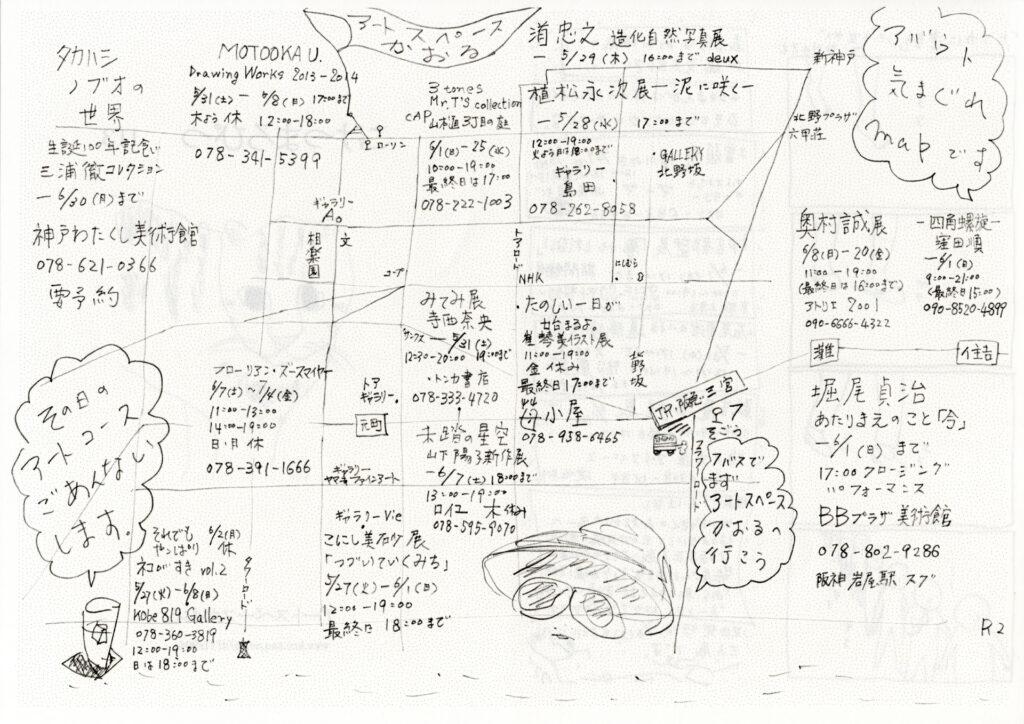 アートスペース
かおる。
タカハシ
ノブオの
世界
生誕100年記念
三浦徹コレクション
— 6/30(月)まで
神戸わたくし美術館
078-621-0366
要予約
MOTOOKA U.
Drawing Works 2013-2014
5/31(土)— 6/8(日) 17:00まで
木よう休 12:00-18:00
078-341-5399
3 tones
Mr.T'S collection
CAP 山本通3丁目の庭
6/1(日)-25(水)
10:00-19:00
最終日は17:00
078-222-1003
ローソン
忠之 造化自然写真展
— 5/29(木) 16:00まで deux
植松永次展—泥に咲く—
— 5/28(水) 17:00まで
12:00-19:00
火よう日は18:00まで
ギャラリー
島田
078-262-8058
・GALLERY
北野坂
新神戸
北野プラザ
六甲荘
アバウト
気まぐれ
mapです
ギャラリー
A。
相楽園
文
コープ
トアロード
NHK
にしむら
B
奥村誠展
6/8(日)-20(金)
11:00-19:00
(最終日は16:00まで)
アトリエ2001
090-6666-4322
—四角螺旋—
窪田順
—6/1(日)
9:00-21:00
(最終日15:00)
090-8520-4899
灘
住吉
みてみ展
寺西奈央
サンクス
— 5/31(土)
12:30-20:00 19:00まで
・トンカ書店
078-333-4720
・たのしい一日が
始まるよ。
崔琴美イラスト展
11:00-19:00
金休み
最終日17:00まで
ギャラリー
小屋
078-938-6465
北野坂
JR・阪急 三宮
7
そごう
フラワーロード
フローリアン・ズースマイヤー
6/7(土)〜7/4(金)
11:00-13:00
14:00-19:00
日・月休
078-391-1666
トア
ギャラリー。
元町
未踏の星空
山下陽子新作展
—6/7(土)18:00まで
13:00-19:00
ロイユ 木休み
078-595-9070
ギャラリー
ヤマキファインアート
堀尾貞治
あたりまえのこと「今」
—6/1(日)まで
17:00 クロージング
パフォーマンス
BBプラザ美術館
078-802-9286
阪神岩屋駅スグ
その日の
アートコース
ごあんない
します。
7バスで
まず
アートスペース
かおるへ
行こう
ギャラリーVie
こにし美砂展
「つづいていくみち」
5/27(火)-6/1(日)
12:00-19:00
最終は18:00まで
それでも
やっぱり
6/2(月)
休
ネコがすき vol.2
5/27(火)-6/8(日)
Kobe 819 Gallery
078-360-3819
12:00-19:00
日は18:00まで
R2